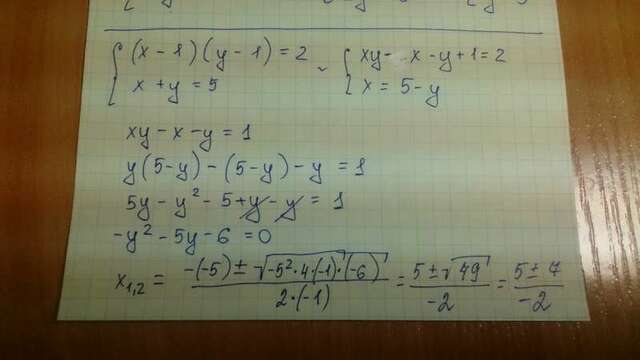 { (x - 1)(y - 1) = 2 ~ { xy - x - y + 1 = 2
{ x + y = 5 { x = 5 - y
xy - x - y = 1
y(5 - y) - (5 - y) - y = 1
5y - y² - 5 + y - y = 1
-y² - 5y - 6 = 0
x₁,₂ = (-(-5) ± √(-5² · 4 · (-1) · (-6))) / (2 · (-1)) = (5 ± √49) / (-2) = (5 ± 7) / (-2)